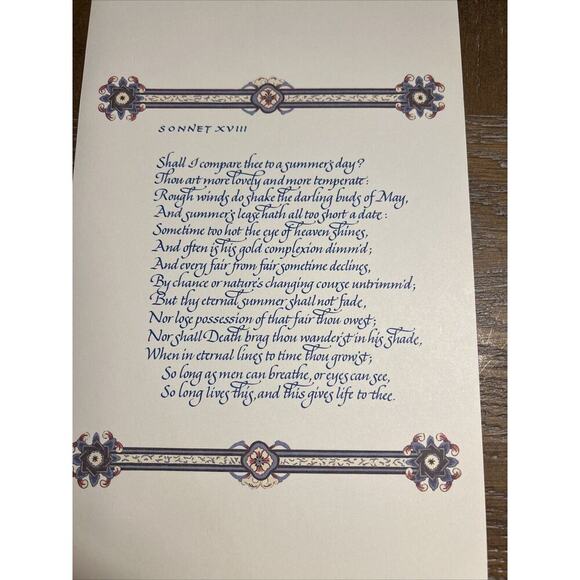 SONNET XVIII
Shall I compare thee to a summer's day?
Thou art more lovely and more temperate:
Rough winds do shake the darling buds of May,
And summer's lease hath all too short a date:
Sometime too hot the eye of heaven shines,
And often is his gold complexion dimm'd;
And every fair from fair sometime declines,
By chance or nature's changing course untrimm'd;
But thy eternal summer shall not fade,
Nor lose possession of that fair thou owest;
Nor shall Death brag thou wander'st in his shade,
When in eternal lines to time thou grow'st;
So long as men can breathe, or eyes can see,
So long lives this, and this gives life to thee.